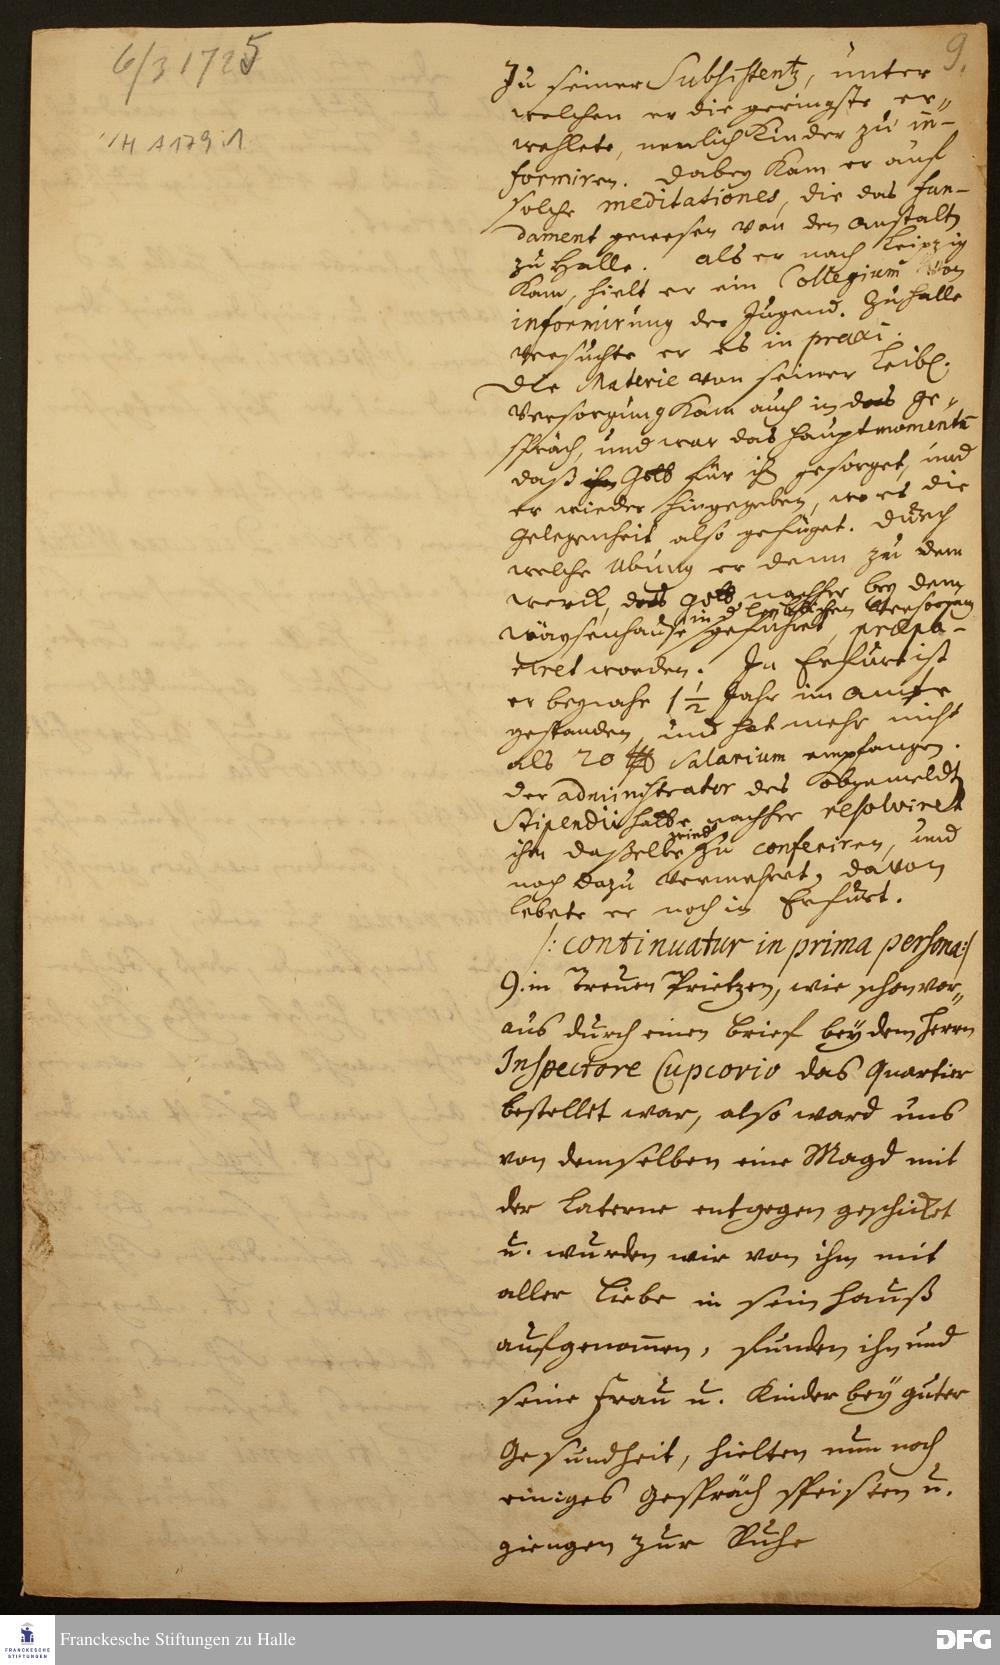 6/3 1725
9.
/H A 179:1
Zu seiner Subsistentz, unter
welchen er die geringste er„
wehlete, nemlich Kinder zu in-
formiren. Dabey kam er auf
solche meditationes, die das fun-
dament gewesen von den Anstalten
zu Halle. Als er nach Leipzig
kam, hielt er ein Collegium von
informirung der Jugend. Zu Halle
versuchte er es in praxi.
Die Materie von seiner leibl.
Versorgung kam auch in das Ge„
spräch, und war das Hauptmomentu
daß ihn Gott für ihn gesorget, und
er wieder hingegeben, wo es die
Gelegenheit also gefüget. Durch
welche Übung er denn zu dem
werck, das Gott nachher bey dem
in d leiblichen Versorgung
Wäysenhause geführet, præpa-
riret worden. In Erfurt ist
er beynahe 1 1/2 Jahr im Amte
gestanden, und hat mehr nicht
als 20 salarium empfangen.
der administrator des obgemeldt
Stipendii hatte nachher resolviret
ihm daßelbe zu conferiren, und
noch dazu vermehret, davon
lebete er noch in Erfurt.
/: continuatur in prima persona:/
9. in Treuen Prietzen, wie schon vor„
aus durch einen Brief bey dem Herrn
Inspectore Cupcovio das Quartier
bestellet war, also ward uns
von demselben eine Magd mit
der Laterne entgegen geschicket
u. wurden wir von ihm mit
aller Liebe in sein Hauß
aufgenommen, funden ihn und
seine Frau u. Kinder bey guter
Gesundheit, hielten nun noch
einiges Gespräch speiseten u.
giengen zur Ruhe
FRANCKESCHE
STIFTUNGEN
Franckesche Stiftungen zu Halle
DFG